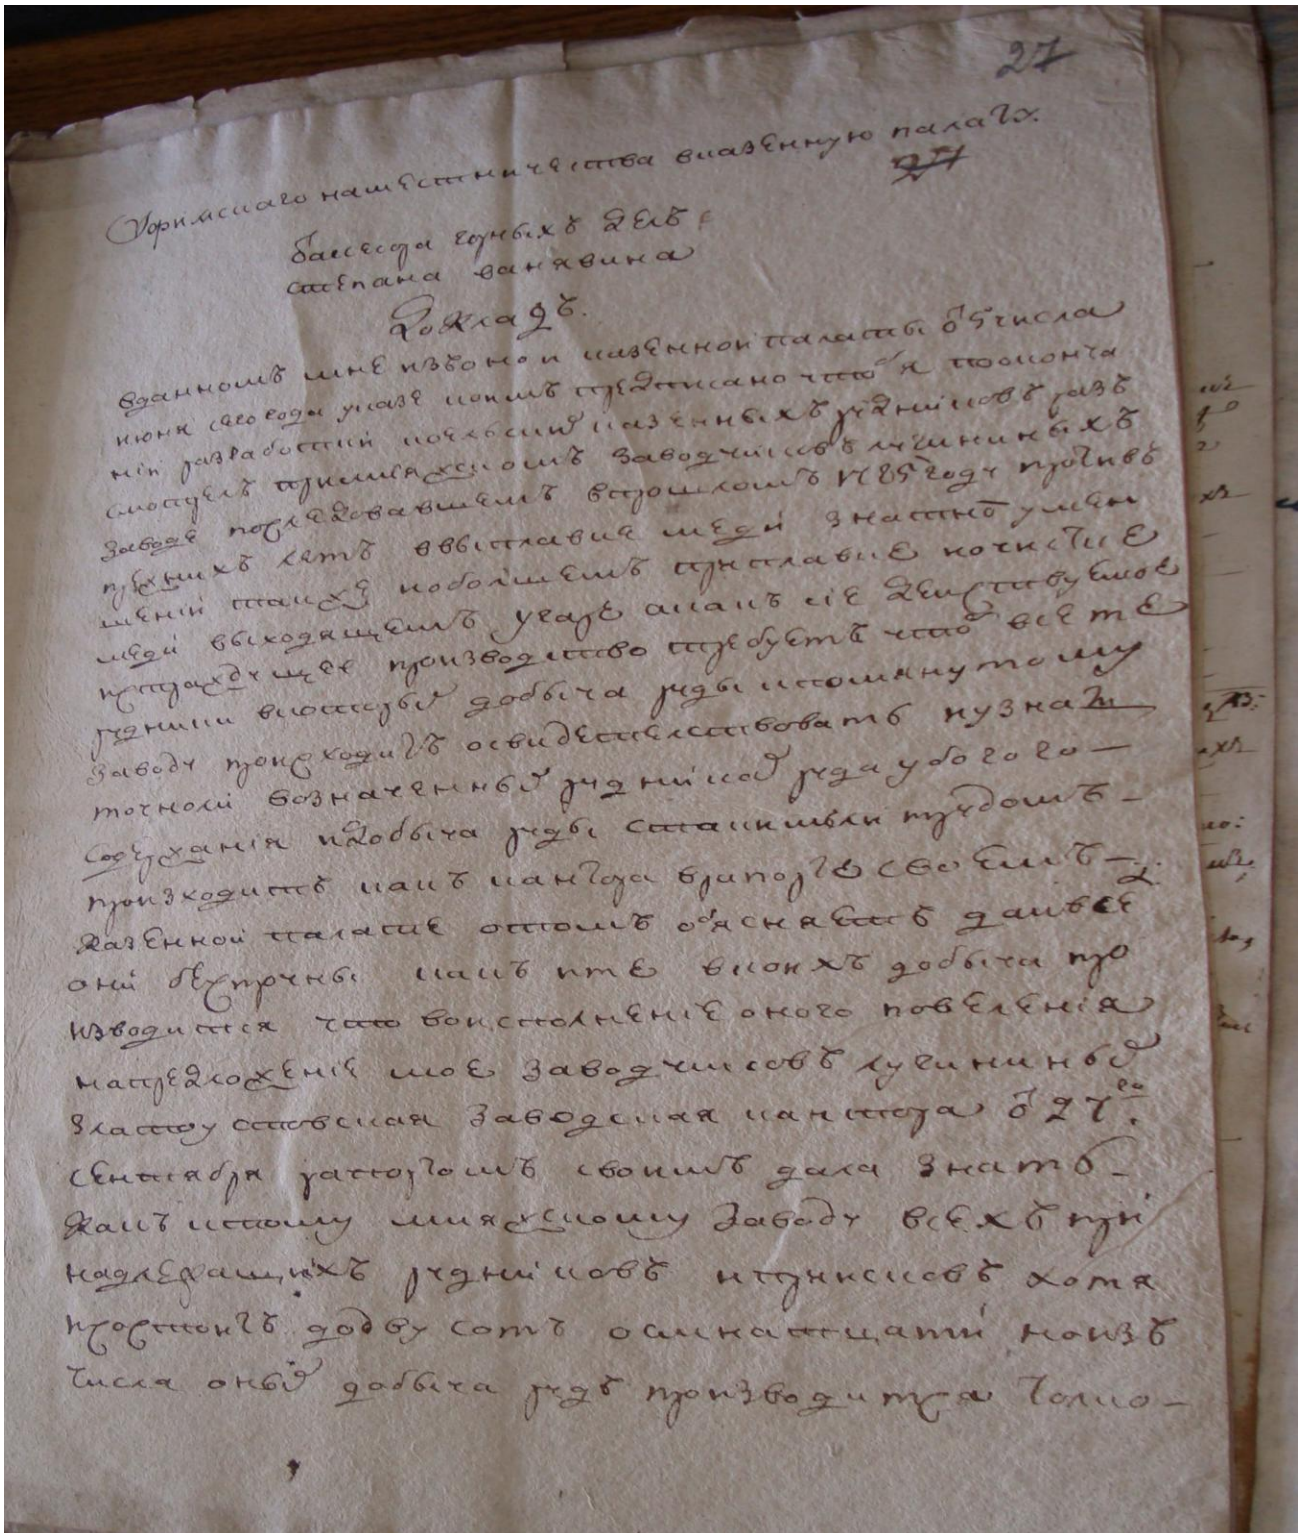 27
Уфимскаго наместничества вказенную палату.
27
бассесора горныхъ делъ
степана ванявина
Докладъ.
вданномъ мне изъоной казенной палаты от 5 числа
июня сего года указе коимъ предписано чтоб я пооконча
нии разработкии казенныхъ рудниковъ разъ
смотрелъ примияжскомъ заводчиковъ лугининыхъ
заводе последовавшемъ впрошломъ 1785 году противъ
прежнихъ летъ ввыплавке меди знатно умен
шении також и оболшемъ приплавке иочистке
меди выходящемъ угаре акакъ сие действуемое
производство требуетъ чтоб все те
рудники вкоторых добыча руды ктомянутому
заводу происходитъ освидетелствовать иузнать
точноли возначенных рудниках руда убогого
содержания идобыча руды стакимъли трудомъ
произходитъ какъ кантора врапорте своемъ
казенной палате отомъ объясняетъ даивсе
они какъ ите вкоихъ добыча про
изводится что воисполнение оного повеления
напредложение мое заводчиковъ лугининых
златоустовская заводская кантора от 27го
сентября рапортомъ своимъ дала знать
какъ ктому мияжскому заводу всехъ при
надлежащихъ рудниковъ иприисковъ хотя
простоитъ додву сотъ осмнатцати ноизъ
числа оных добыча рудъ производитца толко